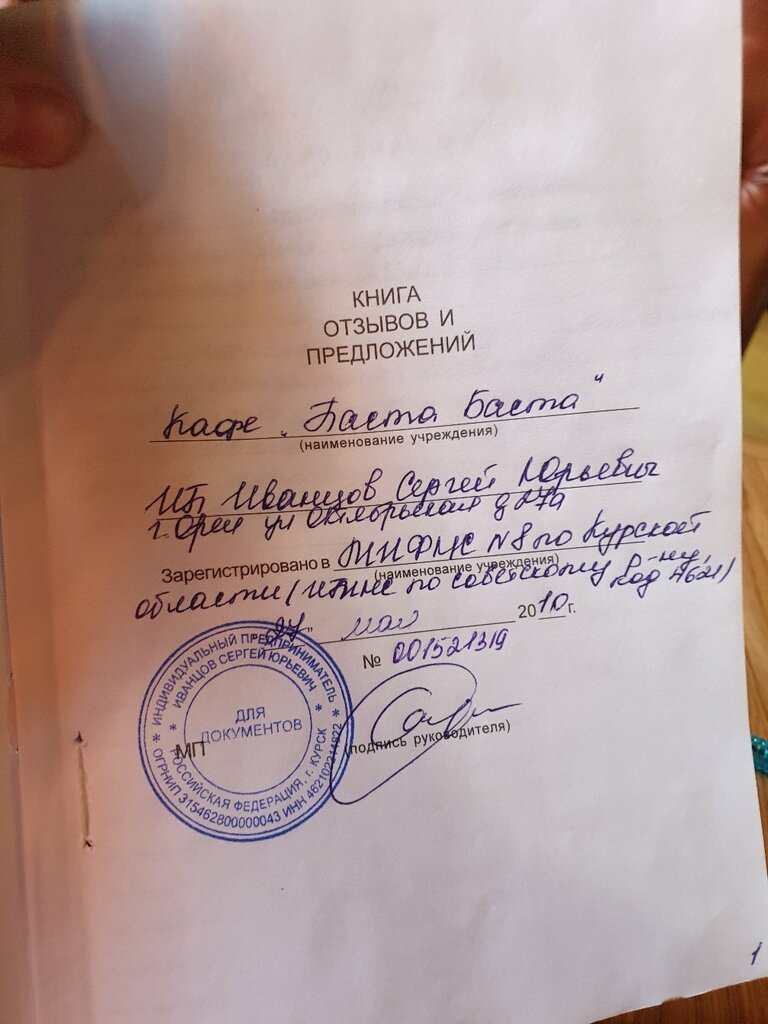 КНИГА
ОТЗЫВОВ И
ПРЕДЛОЖЕНИЙ
Кафе „Паста Баста"
(наименование учреждения)
ИП Иванцов Сергей Юрьевич
г. Орел ул Октябрьская д 27а
Зарегистрировано в МИФНС №8 по Курской
(наименование учреждения)
области (ИМНС по Советскому р-ну, код 4621)
„27" мая 2010 г.
№ 001521319
(подпись руководителя)
МП
* ИНДИВИДУАЛЬНЫЙ ПРЕДПРИНИМАТЕЛЬ *
* ИВАНЦОВ СЕРГЕЙ ЮРЬЕВИЧ *
ДЛЯ
ДОКУМЕНТОВ
РОССИЙСКАЯ ФЕДЕРАЦИЯ, г. КУРСК
ОГРНИП 315462800000043 ИНН
1